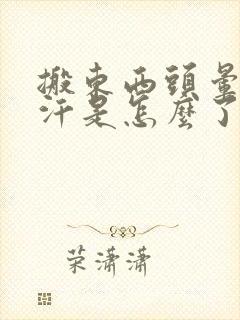 搬東西頭暈
汗是怎麼了
荣潇潇